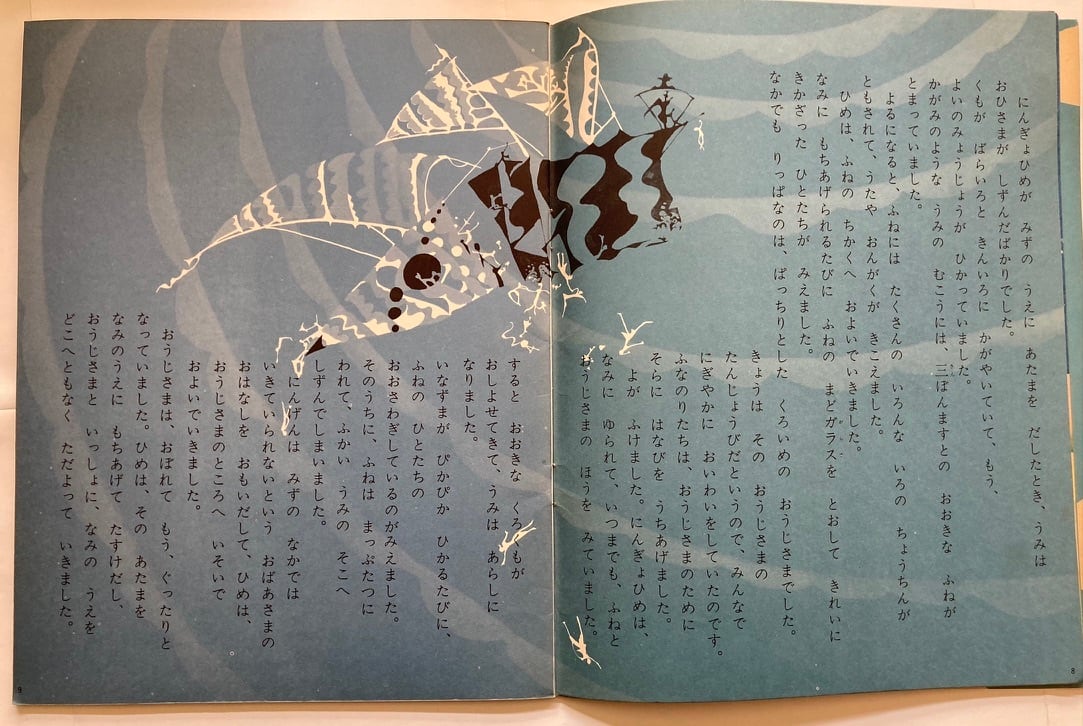 にんぎょひめが　みずの　うえに　あたまを　だしたとき、うみは
おひさまが　しずんだばかりでした。
くもが　ばらいろと　きんいろに　かがやいていて、もう、
よいのみょうじょうが　ひかっていました。
かがみのような　うみの　むこうには、三ぼんますとの　おおきな　ふねが
とまっていました。
よるになると、ふねには　たくさんの　いろんな　いろの　ちょうちんが
ともされて、うたや　おんがくが　きこえました。
ひめは、ふねの　ちかくへ　およいでいきました。
なみに　もちあげられるたびに　ふねの　まどガラスを　とおして　きれいに
きかざった　ひとたちが　みえました。
なかでも　りっぱなのは、ぱっちりとした　くろいめの　おうじさまでした。
きょうは　その　おうじさまの
たんじょうびだというので、みんなで
にぎやかに　おいわいをしていたのです。
ふなのりたちは、おうじさまのために
そらに　はなびを　うちあげました。
よが　ふけました。にんぎょひめは、
なみに　ゆられて、いつまでも、ふねと
おうじさまの　ほうを　みていました。
8
すると　おおきな　くろくもが
おしよせてきて、うみは　あらしに
なりました。
いなずまが　ぴかぴか　ひかるたびに、
ふねの　ひとたちの
おおさわぎしているのがみえました。
そのうちに、ふねは　まっぷたつに
われて、ふかい　うみの　そこへ
しずんでしまいました。
にんげんは　みずの　なかでは
いきていられないという　おばあさまの
おはなしを　おもいだして、ひめは、
おうじさまのところへ　いそいで
およいでいきました。
おうじさまは、おぼれて　もう、ぐったりと
なっていました。ひめは、その　あたまを
なみのうえに　もちあげて　たすけだし、
おうじさまと　いっしょに、なみの　うえを
どこへともなく　ただよって　いきました。
9